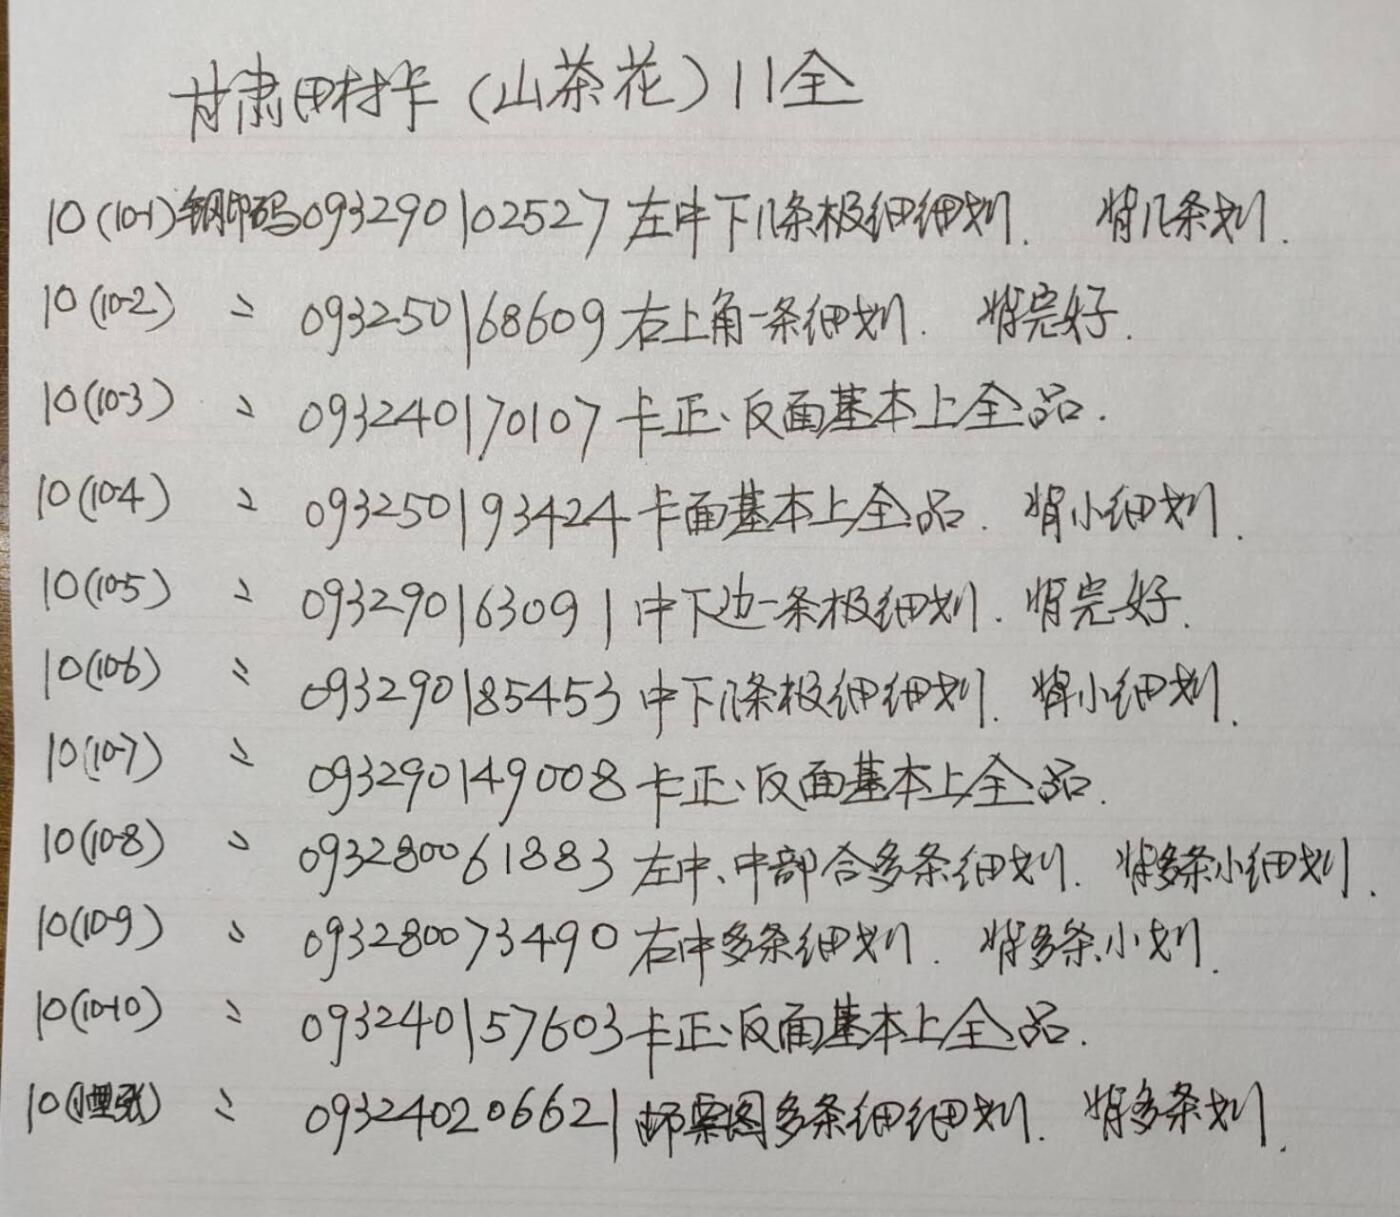 甘肃田村卡（山茶花）11全
10(10-1)钢印码093290102527左中下几条极细细划. 背几条划.
10(10-2) 〃 093250168609右上角一条细划. 背完好.
10(10-3) 〃 093240170107卡正、反面基本上全品.
10(10-4) 〃 093250193424卡面基本上全品. 背小细划.
10(10-5) 〃 093290163091中下边一条极细划. 背完好.
10(10-6) 〃 093290185453中下几条极细细划. 背小细划.
10(10-7) 〃 093290149008卡正、反面基本上全品.
10(10-8) 〃 093280061883左中、中部合多条细划. 背多条小细划.
10(10-9) 〃 093280073490右中多条细划. 背多条小划.
10(10-10) 〃 093240157603卡正、反面基本上全品.
10(小型张) 〃 093240206621邮票图多条细细划. 背多条划.